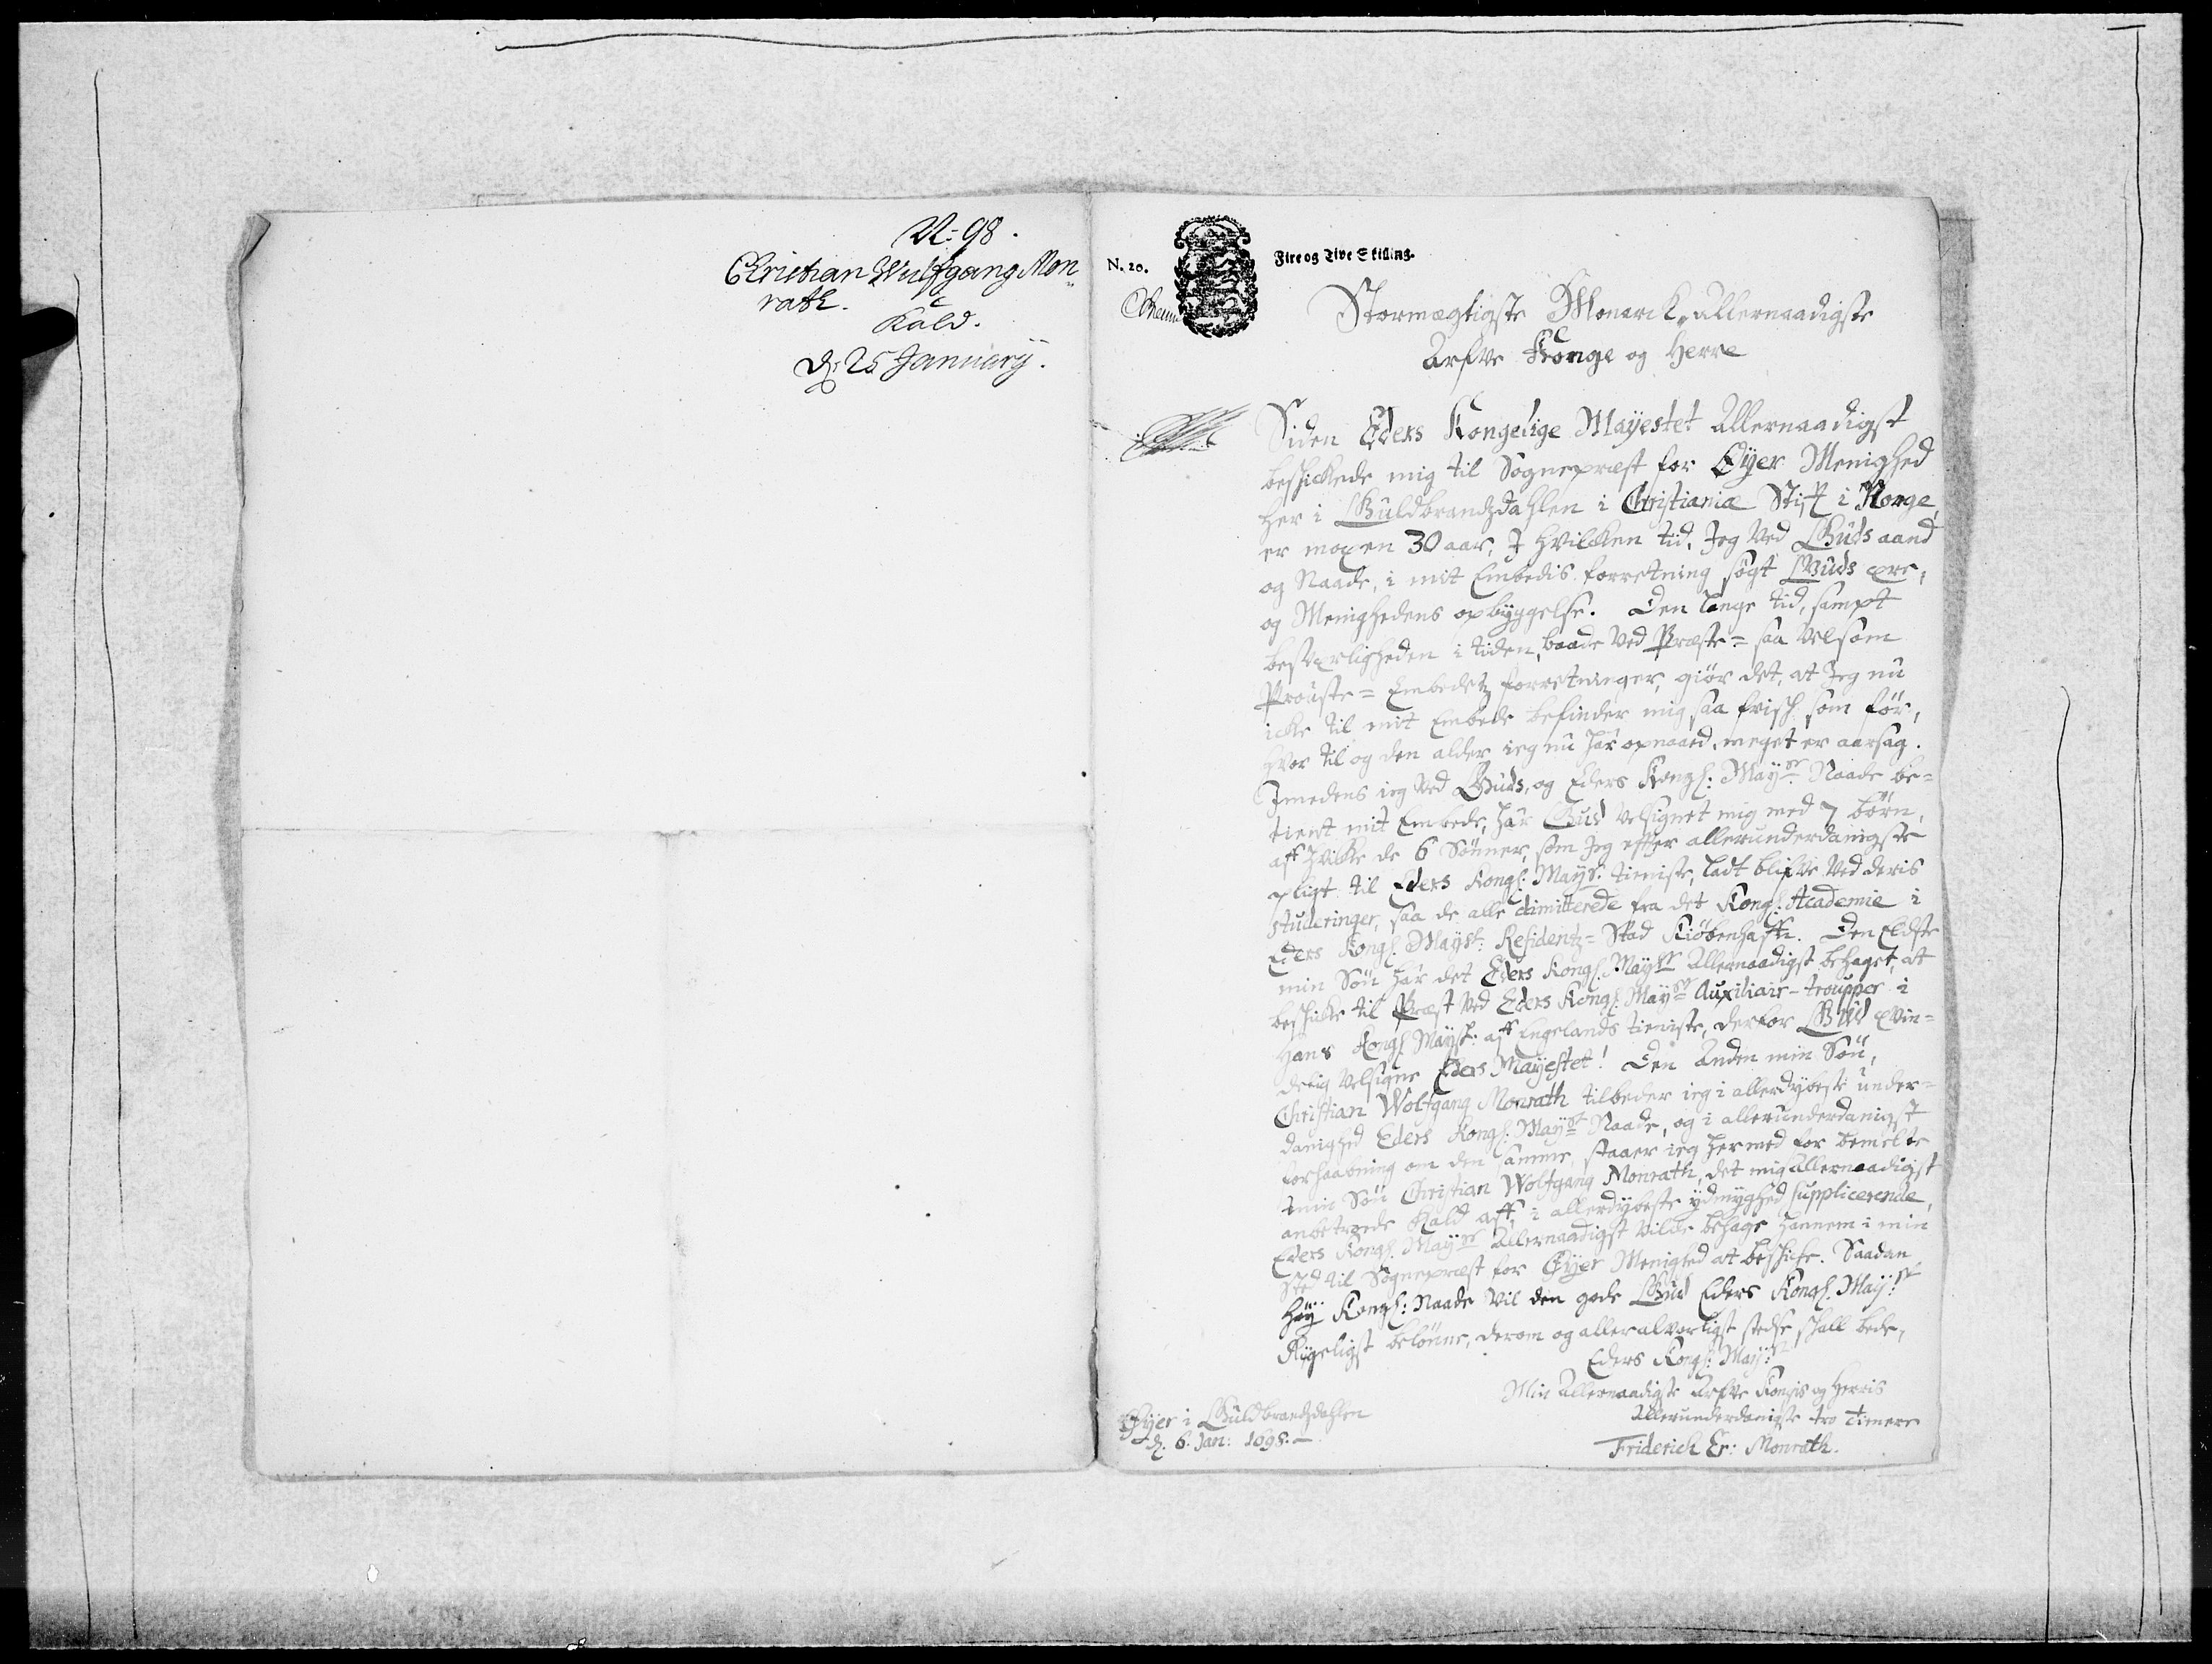 N: 98.
Christian Wulfgang Mon
rath.
Kald.
d: 25 January.
N. 20.
Fire og Tive Skilling.
Stormægtigste Monarck, Allernaadigste
Arfve Konge og Herre
Siden Eders Kongelige Mayestet Allernaadigst
beskickede mig til Sognepræst for Øyer Menighed
her i Guldbrandzdahlen i Christianiæ Stift i Norge,
er moxen 30 aar, I hvilcken tid, Jeg ved Guds aand
og Naade, i mit Embedis forretning søgt Guds ære,
og Menighedens opbyggelse. Den lange tid, sampt
besværligheden i tiden, baade ved Præste= saa velsom
Prouste= Embedetz forretninger, giør det, at Jeg nu
icke til mit Embede befinder mig saa frisk som før,
hvor til og den alder ieg nu har opnaaed, meget er aarsag.
Imedens ieg ved Guds, og Eders Kongl: Mayst Naade be=
tient mit Embede, har Gud velsignet mig med 7 børn,
aff hvilcke de 6 Sønner, som Jeg efter allerunderdanigste
pligt til Eders Kongl: Mayst: tieniste, ladt blifve ved deris
studeringer, saa de alle dimitterede fra det Kongl: Academie i
Eders Kongl: Mayst: Residentz= Stad Kiøbenhafn. Den Eldste
min Søn har det Eders Kongl. Mayst Allernaadigst behaget, at
beskicke til Præst ved Eders Kongl. Mayst Auxiliair-troupper i
Hans Kongl Mayst: aff Engelands tieniste, derfor Gud ævin=
delig velsigne Eders Mayestet! Den Anden min Søn,
Christian Wolfgang Monrath tilbeder ieg i allerdybeste under=
danighed Eders Kongl: Mayst Naade, og i allerunderdanigst
forhaabning om den samme, staaer ieg hermed for bemelte
min Søn Christian Wolfgang Monrath, det mig Allernaadigst
anbetroede Kald aff, i allerdybeste ydmyghed supplicerende,
Eders Kongl. Mayst Allernaadigst vilde behage hannem i min
Sted til Sognepræst for Øyer Menighed at beskicke. Saadan
Høy Kongl: Naade vil den gode Gud Eders Kongl. May:st
Rigeligst belønne, derom og alleralvorligst stedse skall bede,
Eders Kongl: May:st
Min Allernaadigste Arfve Kongis og Herris
Allerunderdanigste tro Tienere
Friderich Er: Monrath.
Øyer i Guldbrandzdahlen
d. 6. Jan: 1698.